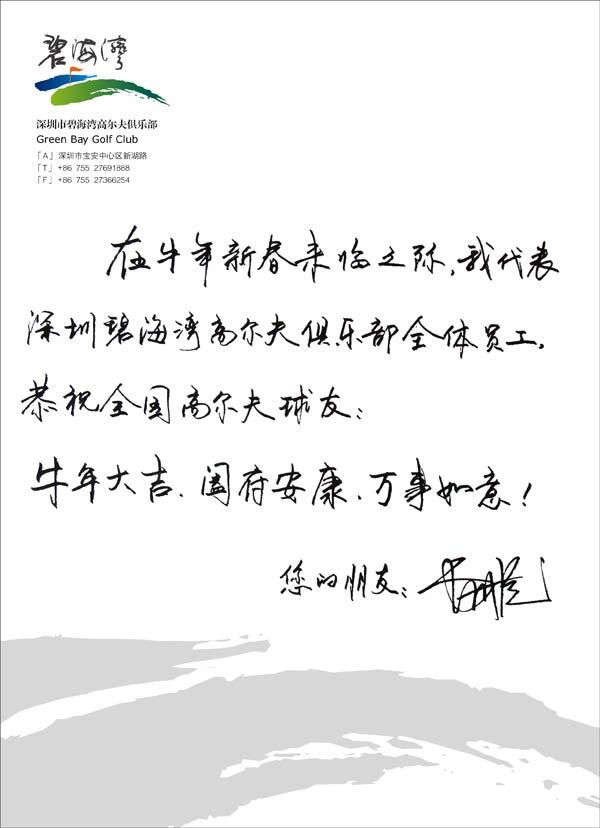 碧海湾
深圳市碧海湾高尔夫俱乐部
Green Bay Golf Club
「A」深圳市宝安中心区新湖路
「T」+86 755 27691868
「F」+86 755 27366254
在牛年新春来临之际，我代表
深圳碧海湾高尔夫俱乐部全体员工，
恭祝全国高尔夫球友：
牛年大吉、阖府安康、万事如意！
您的朋友：